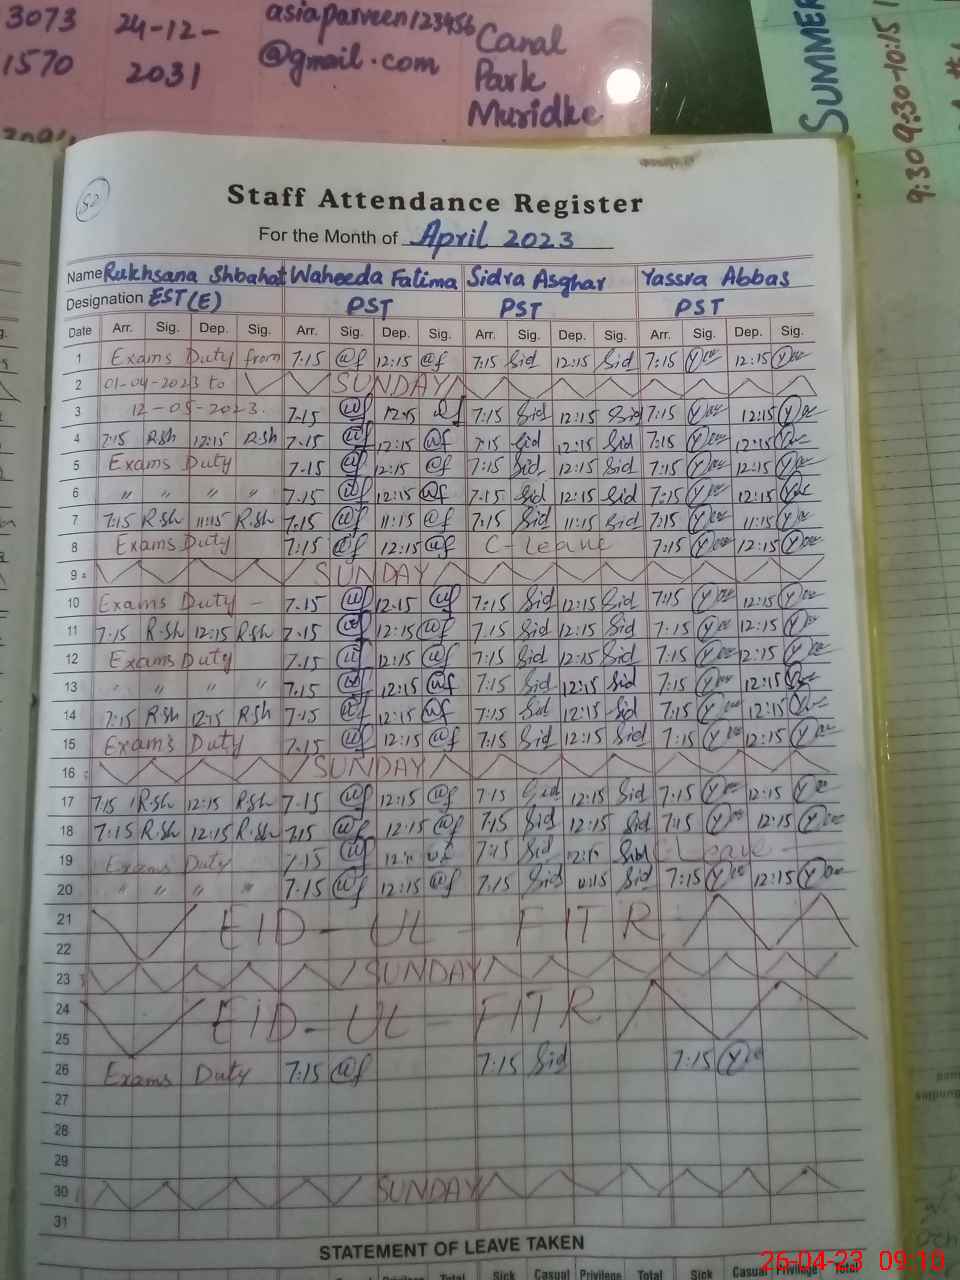 3073 24-12- asiaparveen123456 Canal
1570 2031 @gmail.com Park
Muridke
SUMMER
9:30 9:30-10:15
50
Staff Attendance Register
For the Month of April 2023
Name Rukhsana Shbahat Waheeda Fatima Sidra Asghar Yassra Abbas
Designation EST(E) PST PST PST
Date Arr. Sig. Dep. Sig. Arr. Sig. Dep. Sig. Arr. Sig. Dep. Sig. Arr. Sig. Dep. Sig.
1 Exams Duty from 7.15 @f 12:15 @f 7:15 Sid 12:15 Sid 7:15 12:15
2 01-04-2023 to SUNDAY
3 12-05-2023. 7-15 12:15 7:15 Sid 12:15 Sid 7:15 12:15
4 7:15 R.Sh 12:15 R.Sh 7-15 @f 12:15 @f 7:15 Sid 12:15 Sid 7:15 12:15
5 Exams Duty 7-15 @f 12:15 @f 7:15 Sid 12:15 Sid 7:15 12:15
6 " " " " 7.15 @f 12:15 @f 7.15 Sid 12:15 Sid 7:15 12:15
7 7:15 R.Sh 11:15 R.Sh 7.15 @f 11:15 @f 7:15 Sid 11:15 Sid 7:15 11:15
8 Exams Duty 7:15 @f 12:15 @f C-Leave 7:15 12:15
9 SUNDAY
10 Exams Duty - 7.15 @f 12.15 @f 7:15 Sid 12:15 Sid 7:15 12:15
11 7:15 R.Sh 12:15 R.Sh 7-15 @f 12:15 @f 7.15 Sid 12:15 Sid 7:15 12:15
12 Exams Duty 7.15 @f 12:15 @f 7:15 Sid 12:15 Sid 7:15 12:15
13 " " " " 7.15 @f 12:15 @f 7:15 Sid 12:15 Sid 7:15 12:15
14 7:15 R.Sh 12:15 R.Sh 7.15 @f 12:15 @f 7:15 Sid 12:15 Sid 7:15 12:15
15 Exams Duty 7.15 @f 12:15 @f 7:15 Sid 12:15 Sid 7:15 12:15
16 SUNDAY
17 7:15 R.Sh 12:15 R.Sh 7-15 @f 12:15 @f 7:15 Sid 12:15 Sid 7:15 12:15
18 7:15 R.Sh 12:15 R.Sh 7:15 @f 12:15 @f 7:15 Sid 12:15 Sid 7:15 12:15
19 Exams Duty 7.15 @f 7:15 Sid Sid Leave
20 " " " " 7:15 @f 12:15 @f 7:15 Sid Sid 7:15 12:15
21 EID-UL-FITR
22
23 SUNDAY
24 EID-UL-FITR
25
26 Exams Duty 7:15 @f 7:15 Sid 7:15
27
28
29
30 SUNDAY
31
STATEMENT OF LEAVE TAKEN
Privilege Total Sick Casual Privilege Total Sick Casual Privilege Total
26-04-23 09:10